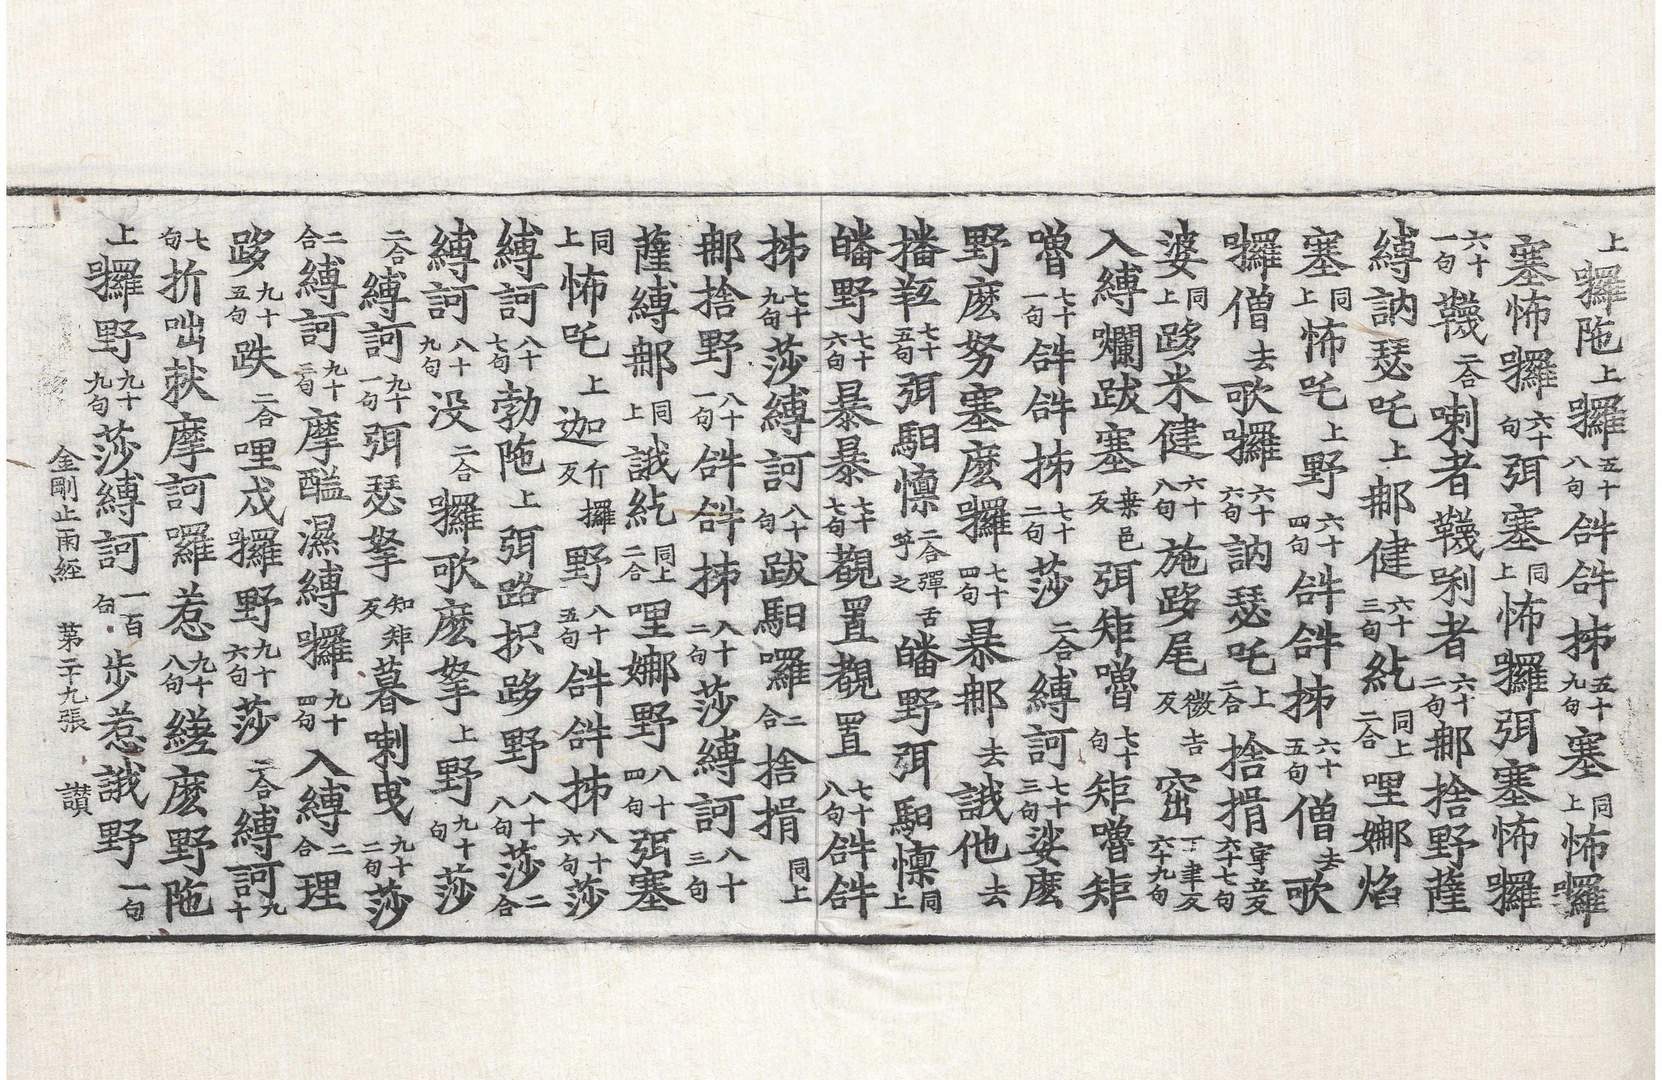 上囉陁上囉五十八句𤙖𤙖㧊五十九句塞同上怖囉
塞怖囉六十句弭塞同上怖囉弭塞怖囉
六十一句韈二合喇者韈唎者六十二句郍捨野薩
縛訥瑟吒上郍健六十三句紇同上二合哩娜焰
塞同上怖吒上野六十四句𤙖𤙖㧊六十五句僧去歌
囉僧去歌囉六十六句訥瑟吒上二合捨揖寧立反六十七句
婆同上跢米健六十八句施跢尾微吉反窋丁聿反六十九句
入縛爛跋塞桒邑反弭矩嚕七十句矩嚕矩
嚕七十一句𤙖𤙖㧊七十二句莎二合縛訶七十三句娑麽
野麽努塞麽囉七十四句暴郍去誐他去
播䍧七十五句弭馹懍二合彈舌呼之皤野弭馹懍同上
皤野七十六句暴暴七十七句觀置觀置七十八句𤙖𤙖
㧊七十九句莎縛訶八十句跋馹囉二合捨揖同上
郍捨野八十一句𤙖𤙖㧊八十二句莎縛訶八十三句
薩縛郍同上誐紇同上二合哩娜野八十四句弭塞
同上怖吒上迦斤反攞野八十五句𤙖𤙖㧊八十六句莎
縛訶八十七句勃陁上弭路抧跢野八十八句莎二合
縛訶八十九句沒二合囉歌麽拏上野九十句莎
二合縛訶九十一句弭瑟拏知矩反暮喇曳九十二句莎
二合縛訶九十三句摩醯濕縛囉九十四句入縛二合理
跢九十五句跌二合哩戍囉野九十六句莎二合縛訶九十
七句折咄𣘺摩訶囉惹九十八句縒麽野陁
上囉野九十九句莎縛訶一百句步惹誐野一句
金剛止雨經 第二十九張 讃